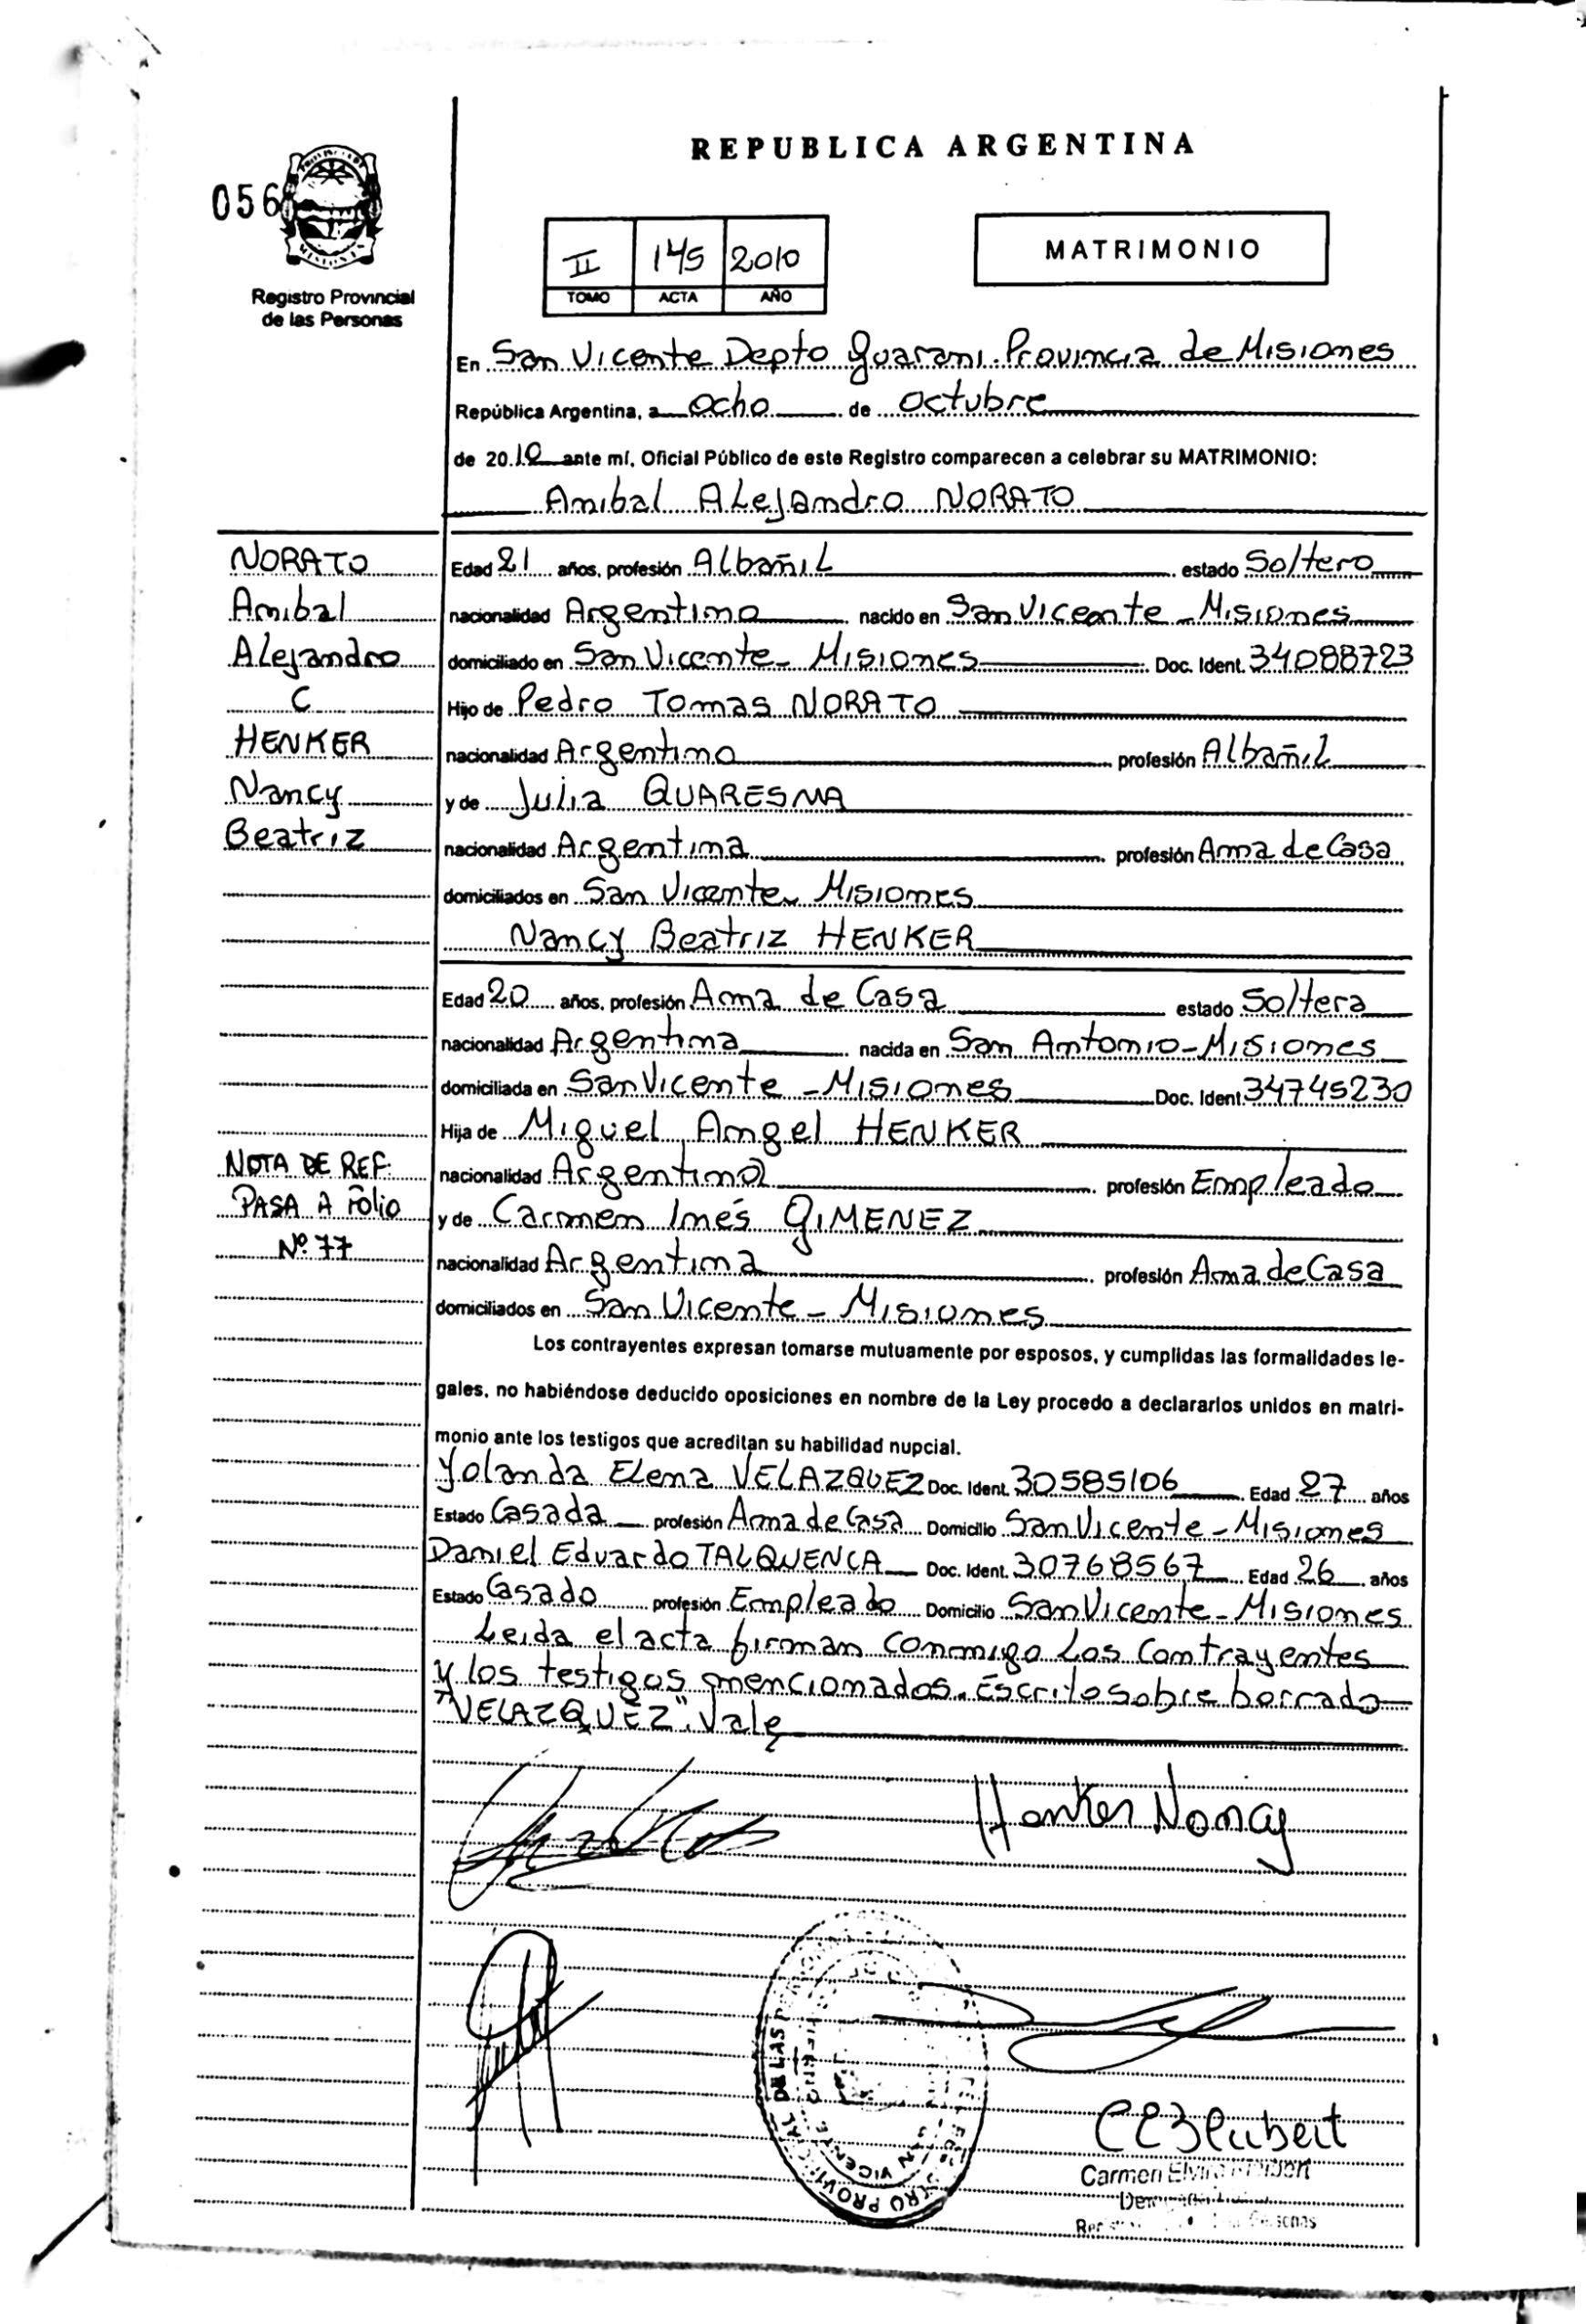 REPUBLICA ARGENTINA
056
MISIONES
Registro Provincial
de las Personas
II 145 2010
TOMO ACTA AÑO
MATRIMONIO
En San Vicente Depto Guarani. Provincia de Misiones
República Argentina, a ocho de octubre
de 2010 ante mí, Oficial Público de este Registro comparecen a celebrar su MATRIMONIO:
Anibal Alejandro NORATO
NORATO
Anibal
Alejandro
C
HENKER
Nancy
Beatriz
NOTA DE REF.
PASA A FOLIO
Nº 77
Edad 21 años, profesión Albañil estado Soltero
nacionalidad Argentino nacido en San Vicente - Misiones
domiciliado en San Vicente - Misiones Doc. Ident. 34088723
Hijo de Pedro Tomas NORATO
nacionalidad Argentino profesión Albañil
y de Julia QUARESMA
nacionalidad Argentina profesión Ama de Casa
domiciliados en San Vicente - Misiones
Nancy Beatriz HENKER
Edad 20 años, profesión Ama de Casa estado Soltera
nacionalidad Argentina nacida en San Antonio - Misiones
domiciliada en San Vicente - Misiones Doc. Ident. 34745230
Hija de Miguel Angel HENKER
nacionalidad Argentino profesión Empleado
y de Carmen Inés GIMENEZ
nacionalidad Argentina profesión Ama de Casa
domiciliados en San Vicente - Misiones
Los contrayentes expresan tomarse mutuamente por esposos, y cumplidas las formalidades le-
gales, no habiéndose deducido oposiciones en nombre de la Ley procedo a declararlos unidos en matri-
monio ante los testigos que acreditan su habilidad nupcial.
Yolanda Elena VELAZQUEZ Doc. Ident. 30585106 Edad 27 años
Estado Casada profesión Ama de Casa Domicilio San Vicente - Misiones
Daniel Eduardo TALQUENCA Doc. Ident. 30768567 Edad 26 años
Estado Casado profesión Empleado Domicilio San Vicente - Misiones
Leida el acta firman conmigo los contrayentes
y los testigos mencionados. Escrito sobre borrado
"VELAZQUEZ". Vale
Henker Nancy
Carmen Elvira